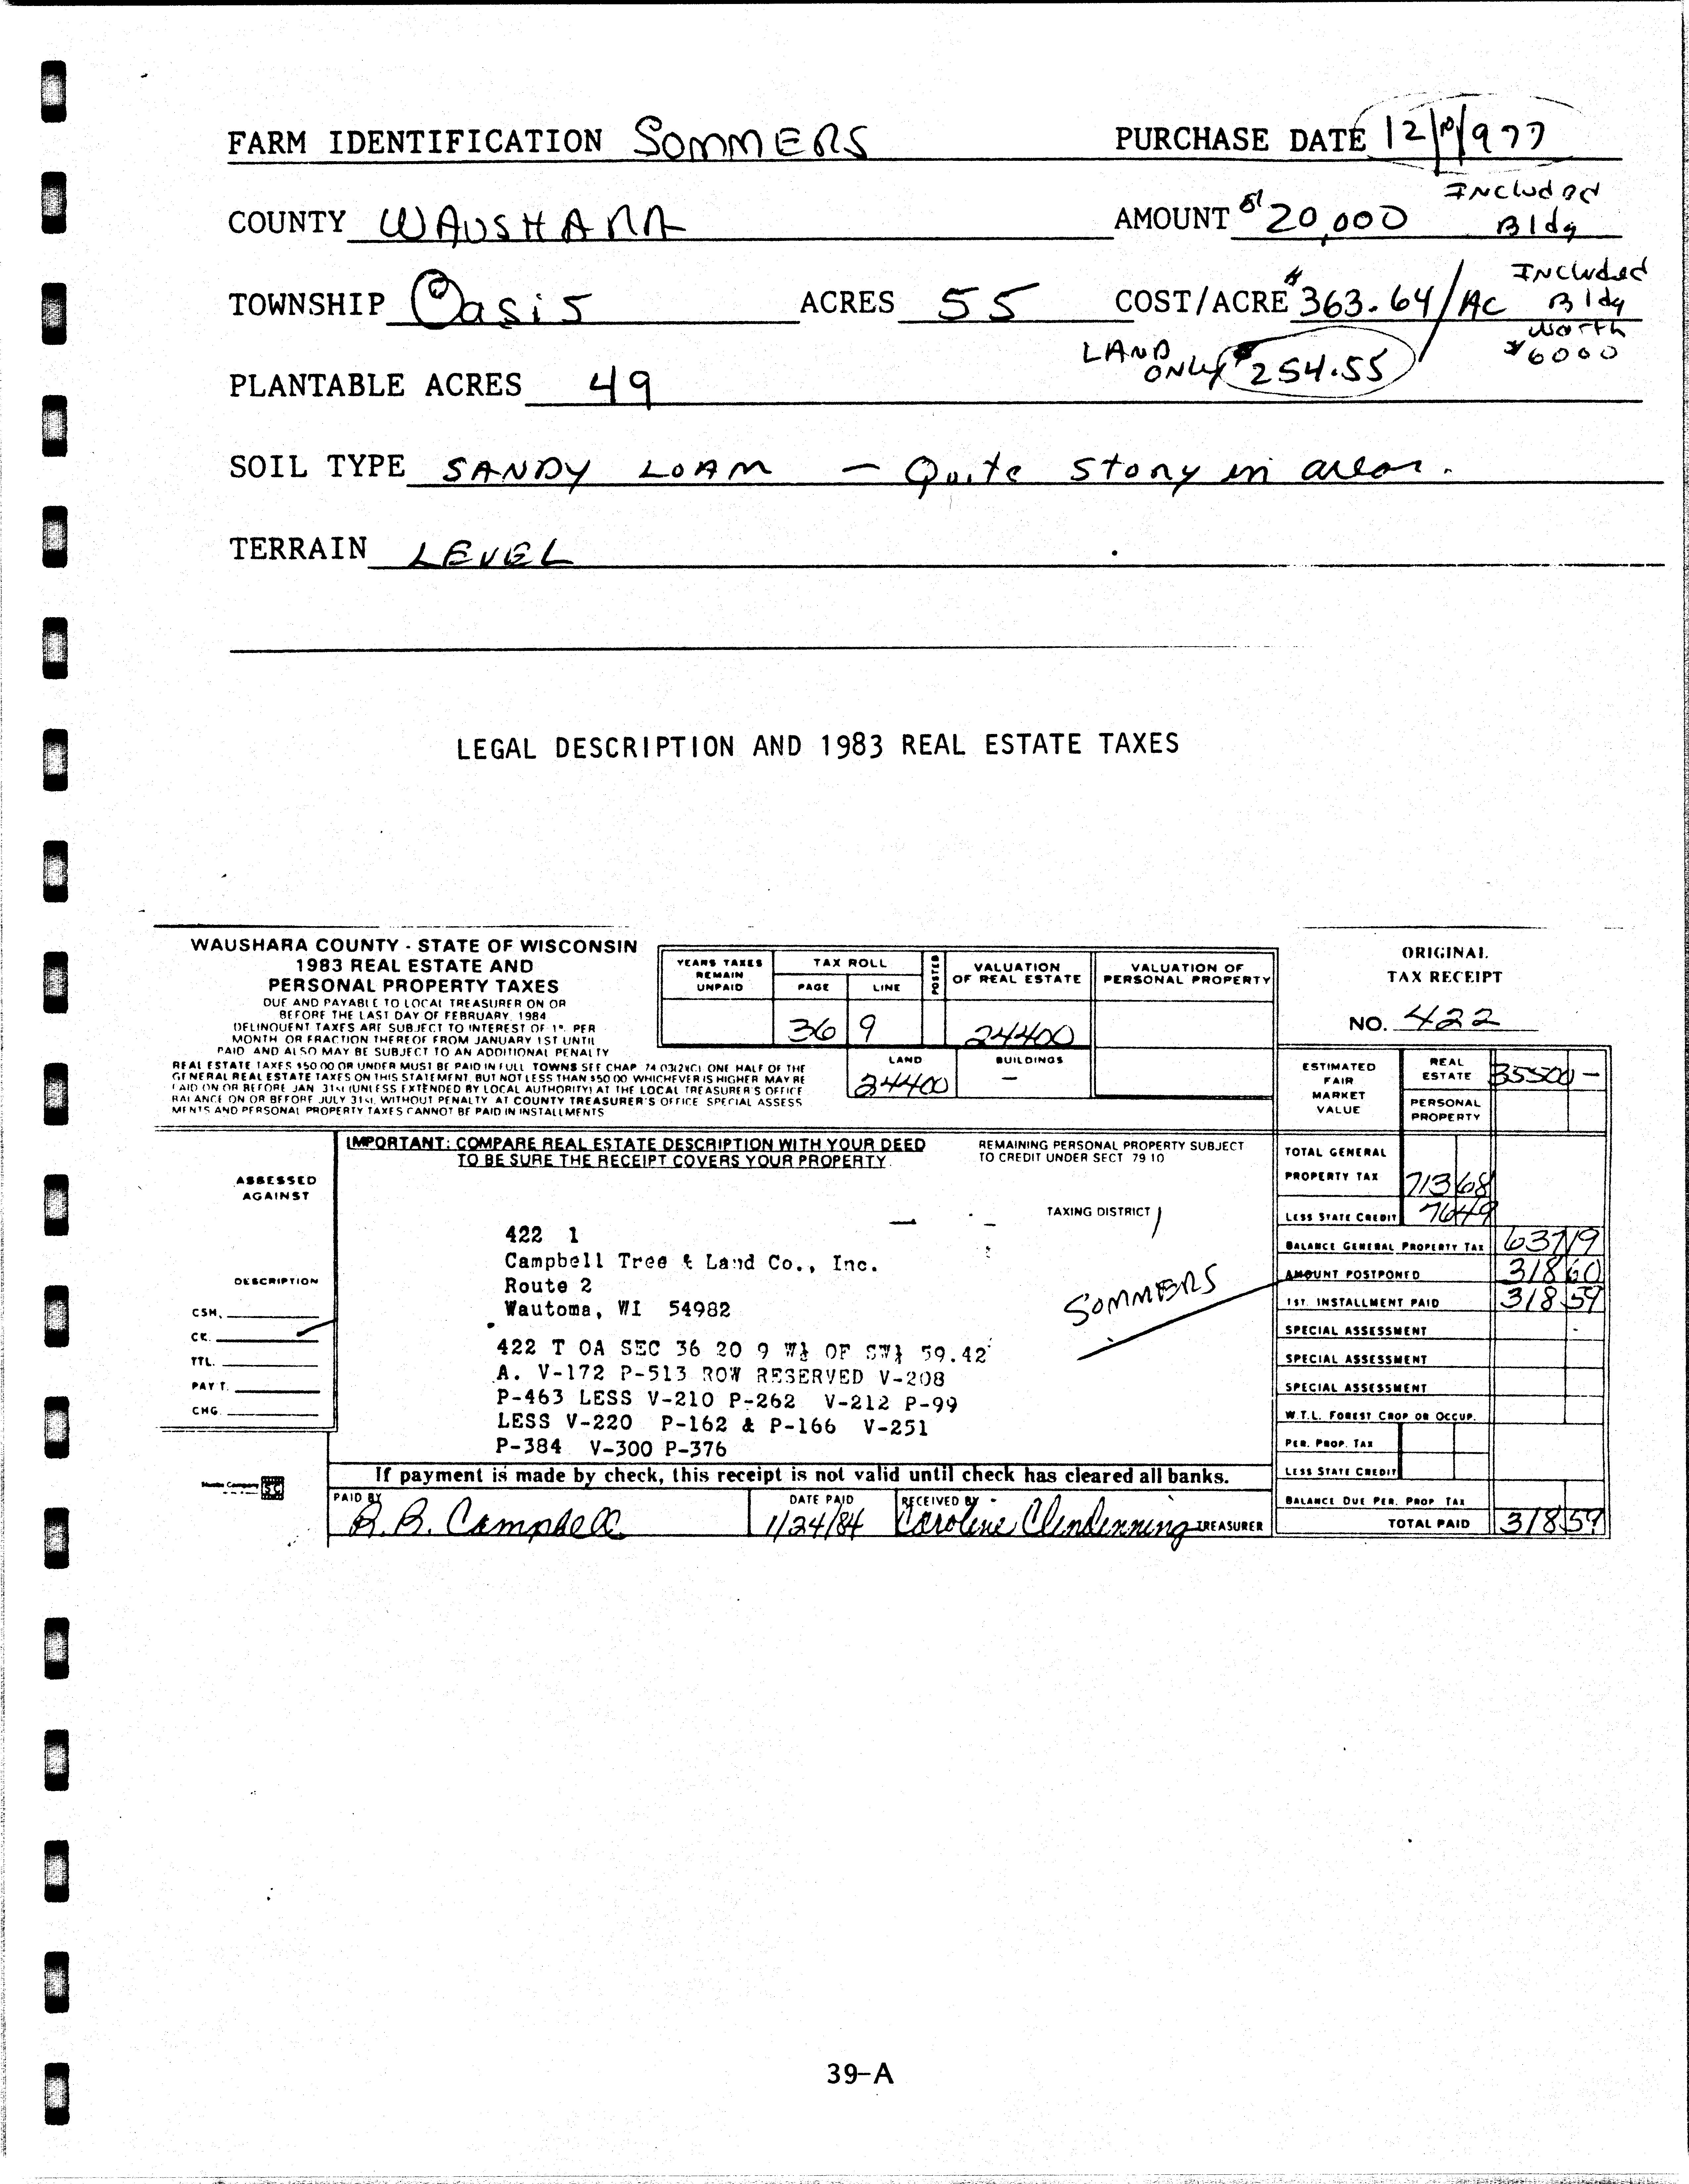 FARM IDENTIFICATION SOMMERS PURCHASE DATE
COUNTY WAUSHARA AMOUNT $20,000 Included Bldg
TOWNSHIP Oasis ACRES 55 COST/ACRE $363.64/AC Included Bldg worth $6000
LAND ONLY $254.55
PLANTABLE ACRES 49
SOIL TYPE SANDY LOAM - Quite stony in areas.
TERRAIN LEVEL
LEGAL DESCRIPTION AND 1983 REAL ESTATE TAXES
WAUSHARA COUNTY - STATE OF WISCONSIN
1983 REAL ESTATE AND
PERSONAL PROPERTY TAXES
DUE AND PAYABLE TO LOCAL TREASURER ON OR
BEFORE THE LAST DAY OF FEBRUARY, 1984
DELINQUENT TAXES ARE SUBJECT TO INTEREST OF 1% PER
MONTH OR FRACTION THEREOF FROM JANUARY 1ST UNTIL
PAID AND ALSO MAY BE SUBJECT TO AN ADDITIONAL PENALTY
REAL ESTATE TAXES $50.00 OR UNDER MUST BE PAID IN FULL TOWNS SEE CHAP 74 03(2)(C) ONE HALF OF THE
GENERAL REAL ESTATE TAXES ON THIS STATEMENT, BUT NOT LESS THAN $50.00 WHICHEVER IS HIGHER MAY BE
PAID ON OR BEFORE JAN 31st (UNLESS EXTENDED BY LOCAL AUTHORITY) AT THE LOCAL TREASURER'S OFFICE
BALANCE ON OR BEFORE JULY 31st, WITHOUT PENALTY AT COUNTY TREASURER'S OFFICE SPECIAL ASSESS
MENTS AND PERSONAL PROPERTY TAXES CANNOT BE PAID IN INSTALLMENTS
YEARS TAXES REMAIN UNPAID
TAX ROLL
PAGE LINE
POSTED
VALUATION OF REAL ESTATE
VALUATION OF PERSONAL PROPERTY
36 9 24400
LAND BUILDINGS
24400 -
ORIGINAL
TAX RECEIPT
NO. 422
ESTIMATED FAIR MARKET VALUE
REAL ESTATE 35500 -
PERSONAL PROPERTY
IMPORTANT: COMPARE REAL ESTATE DESCRIPTION WITH YOUR DEED
TO BE SURE THE RECEIPT COVERS YOUR PROPERTY.
REMAINING PERSONAL PROPERTY SUBJECT
TO CREDIT UNDER SECT 79 10
TAXING DISTRICT
ASSESSED
AGAINST
422 1
Campbell Tree & Land Co., Inc.
Route 2
Wautoma, WI 54982
SOMMERS
DESCRIPTION
CSH.
CK.
TTL.
PAY T.
CHG.
422 T OA SEC 36 20 9 W½ OF SW¼ 59.42
A. V-172 P-513 ROW RESERVED V-208
P-463 LESS V-210 P-262 V-212 P-99
LESS V-220 P-162 & P-166 V-251
P-384 V-300 P-376
TOTAL GENERAL
PROPERTY TAX 713 68
LESS STATE CREDIT 76 49
BALANCE GENERAL PROPERTY TAX 637 19
AMOUNT POSTPONED 318 60
1ST. INSTALLMENT PAID 318 59
SPECIAL ASSESSMENT
SPECIAL ASSESSMENT
SPECIAL ASSESSMENT
W.T.L. FOREST CROP OR OCCUP.
PER. PROP. TAX
LESS STATE CREDIT
BALANCE DUE PER. PROP TAX
TOTAL PAID 318 59
If payment is made by check, this receipt is not valid until check has cleared all banks.
PAID BY B.B. Campbell
DATE PAID 1/24/84
RECEIVED BY Caroline Clendenning TREASURER
39-A